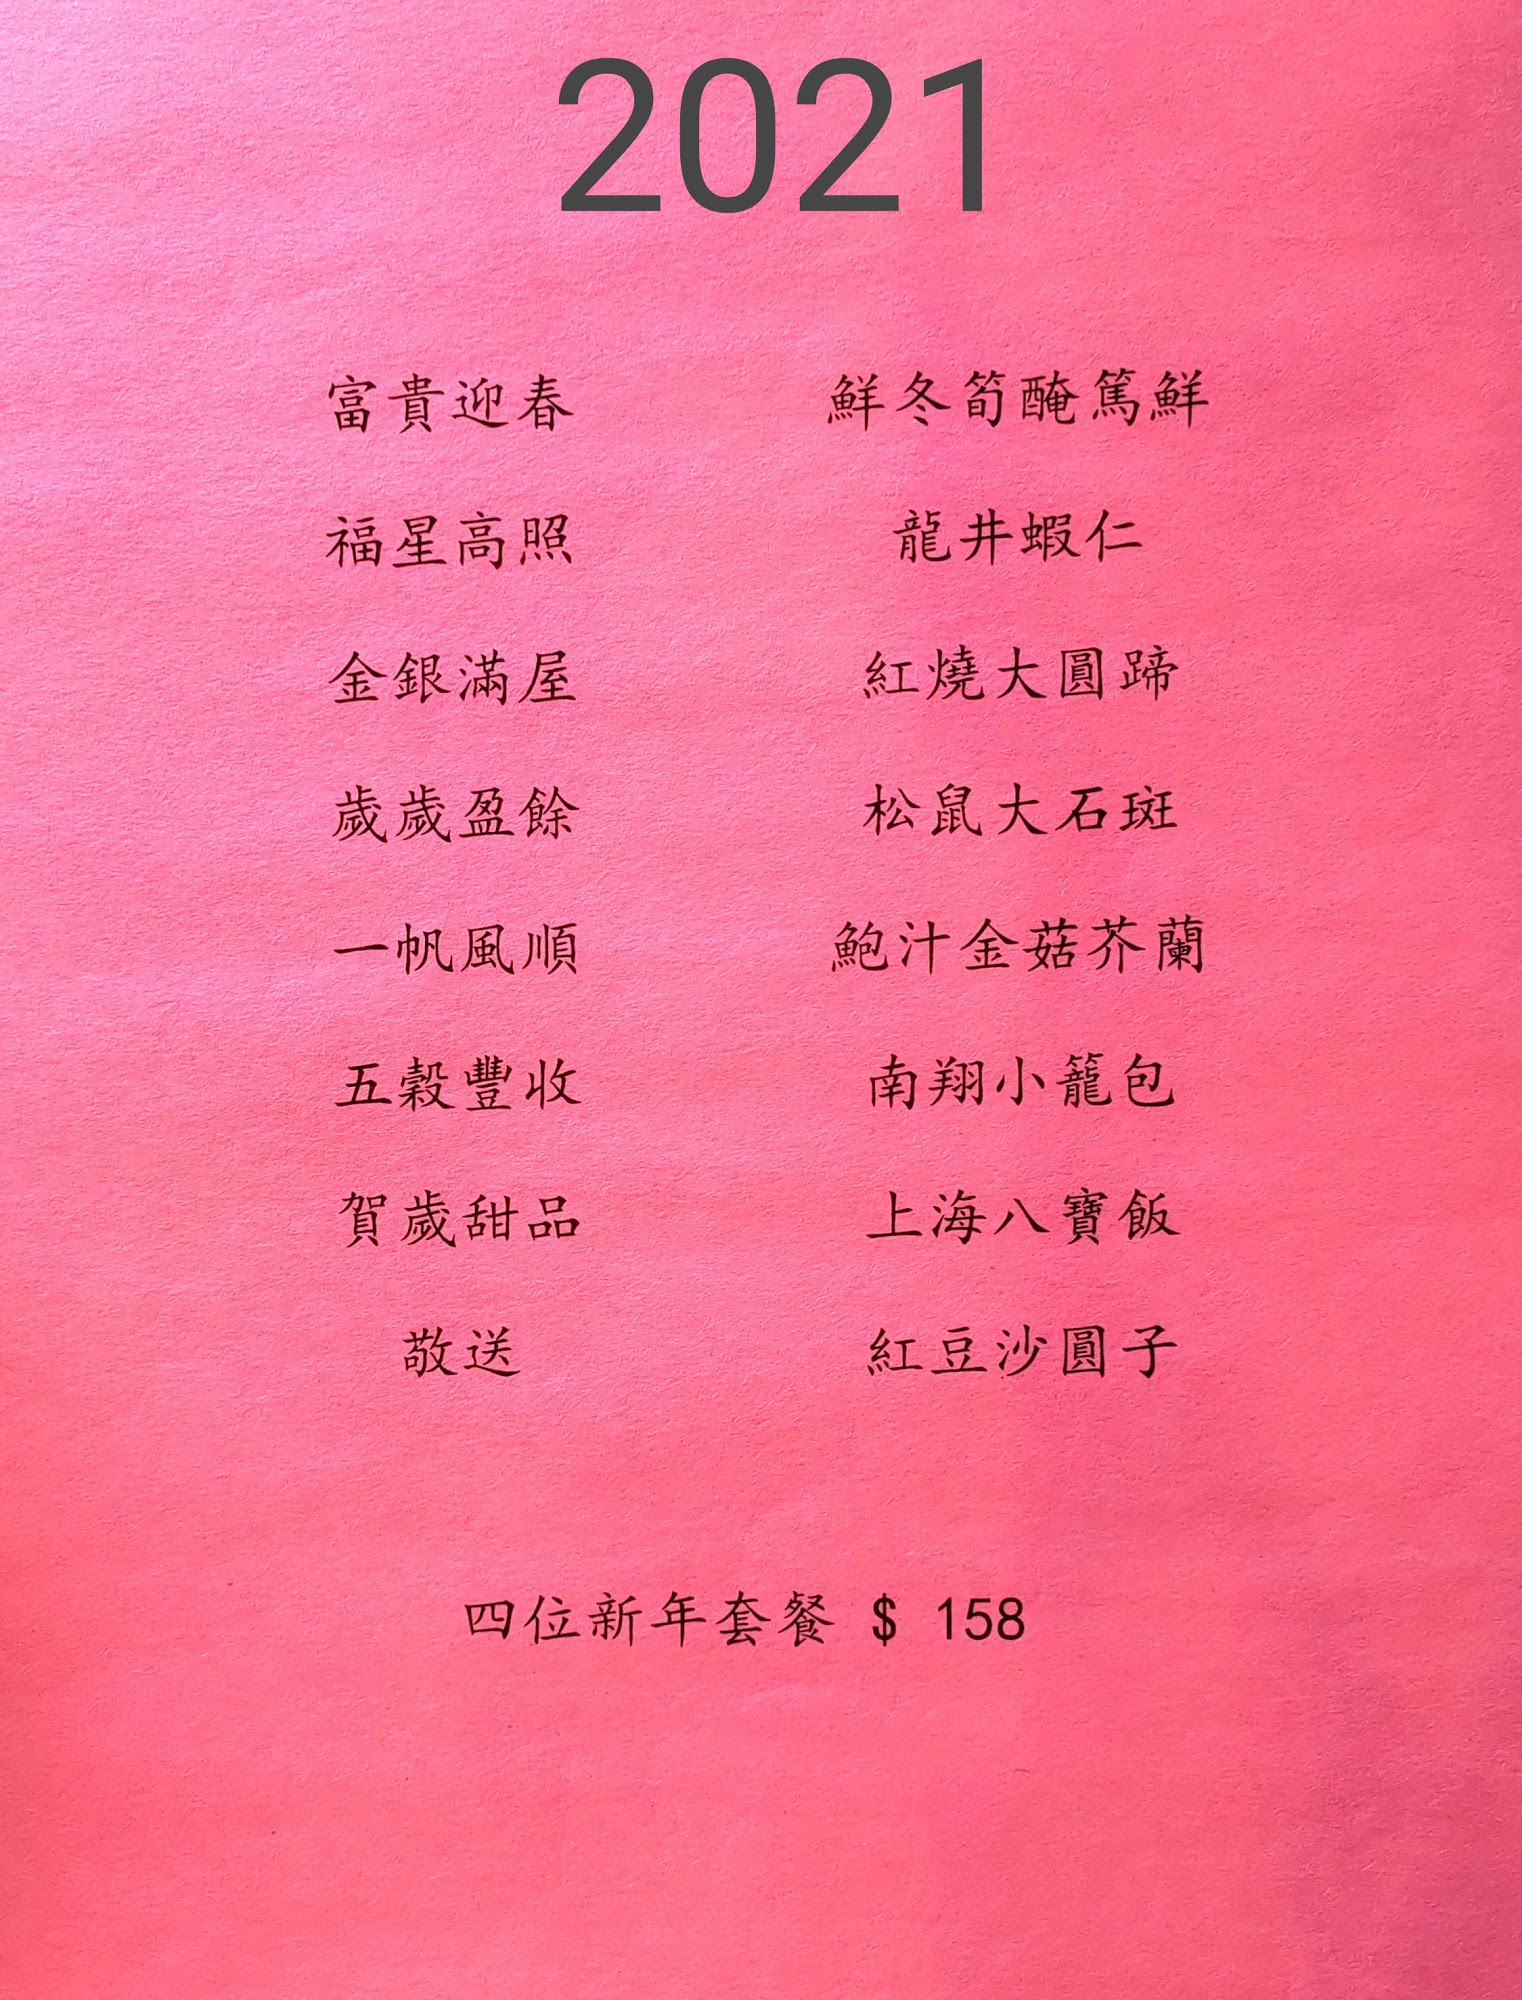 2021
富貴迎春 鮮冬筍醃篤鮮
福星高照 龍井蝦仁
金銀滿屋 紅燒大圓蹄
歲歲盈餘 松鼠大石斑
一帆風順 鮑汁金菇芥蘭
五穀豐收 南翔小籠包
賀歲甜品 上海八寶飯
敬送 紅豆沙圓子
四位新年套餐 $ 158